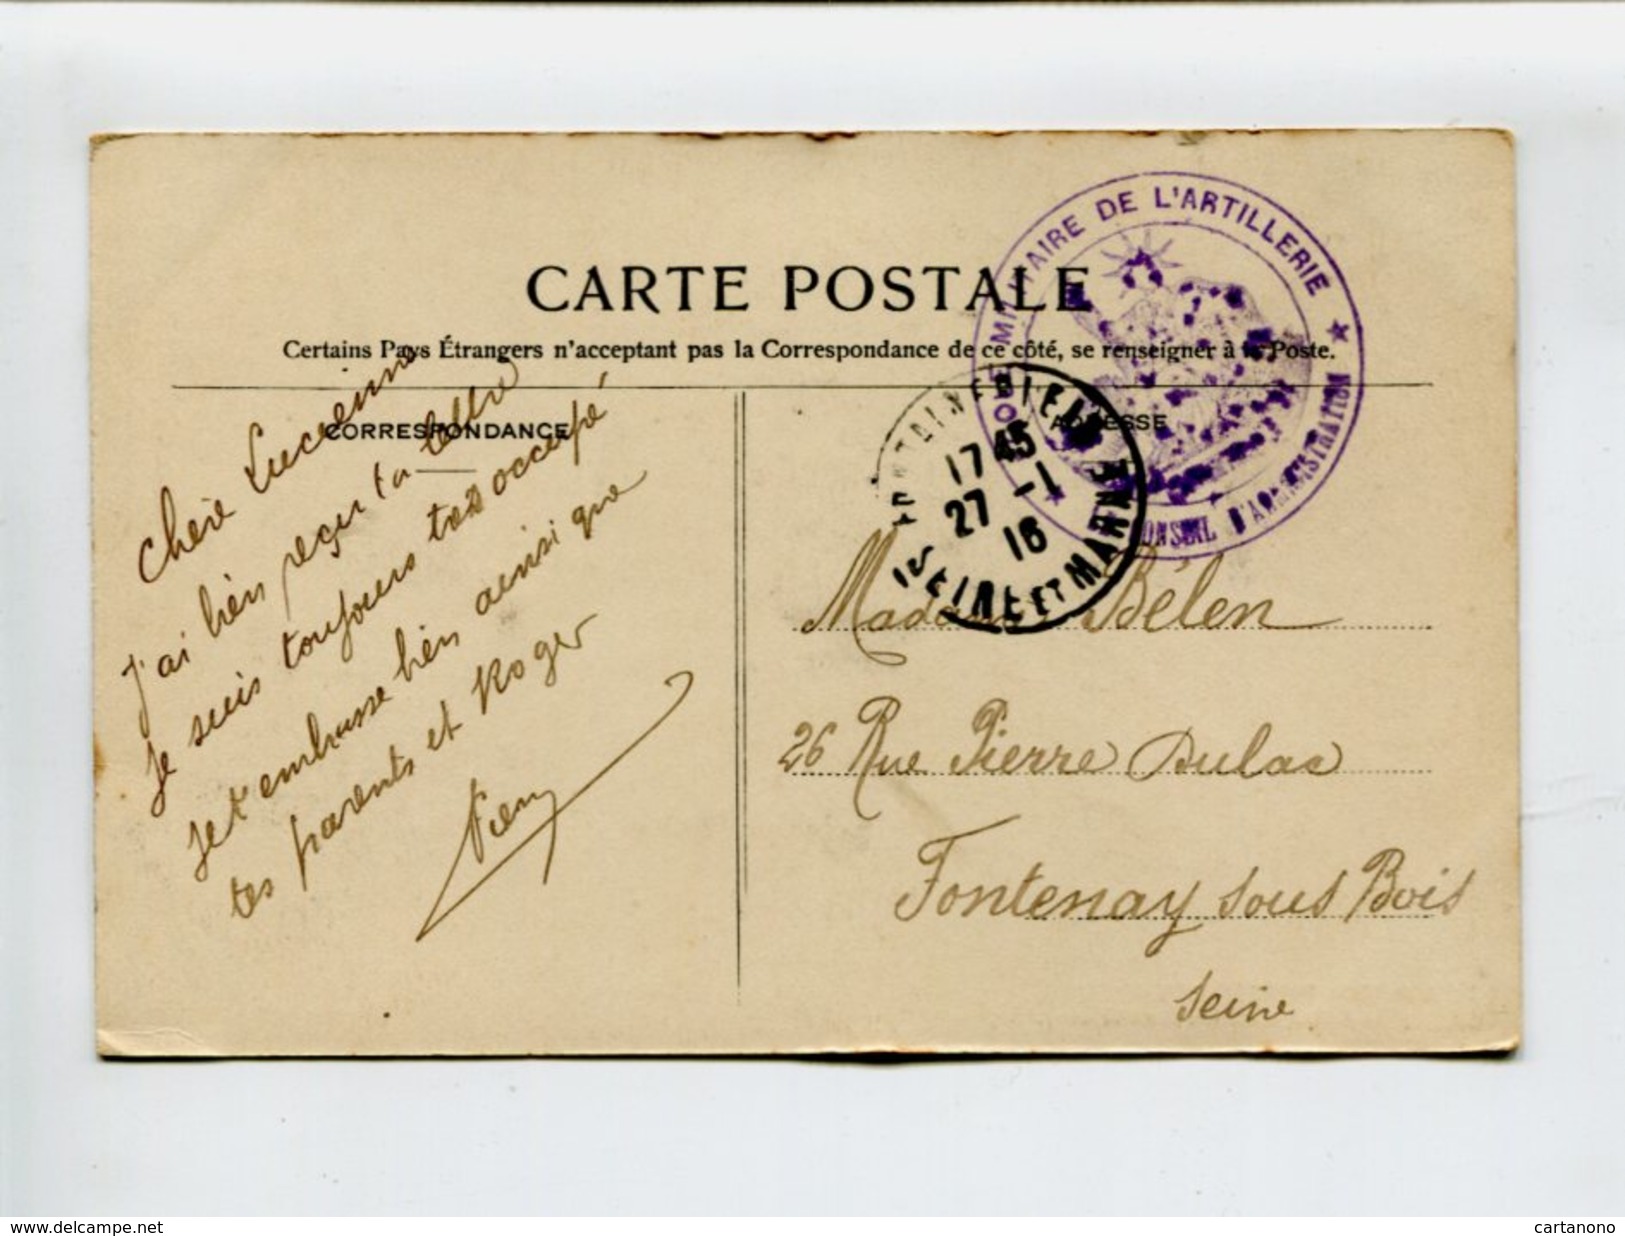 CARTE POSTALE
Certains Pays Étrangers n'acceptant pas la Correspondance de ce côté, se renseigner à la Poste.
CORRESPONDANCE
ADRESSE
Chère Lucienne
J'ai bien reçu ta lettre
je suis toujours très occupé
Je t'embrasse bien ainsi que
tes parents et Roger
MILITAIRE DE L'ARTILLERIE
CONSEIL D'ADMINISTRATION
FONTAINEBLEAU
17 45
27 -1
16
SEINE ET MARNE
Madame Bélen
26 Rue Pierre Dulac
Fontenay sous Bois
Seine
www.delcampe.net
cartanono